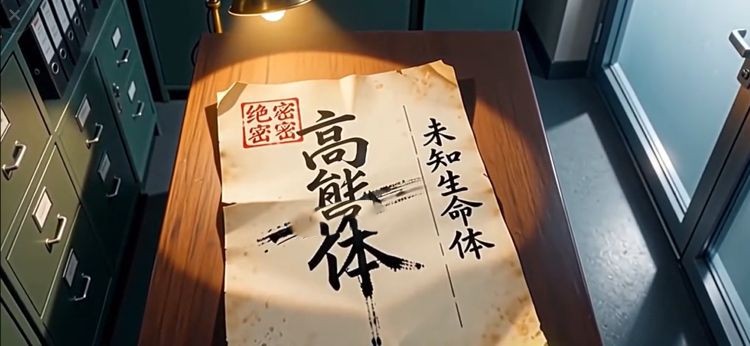 绝密
密密
高能体
未知生命体